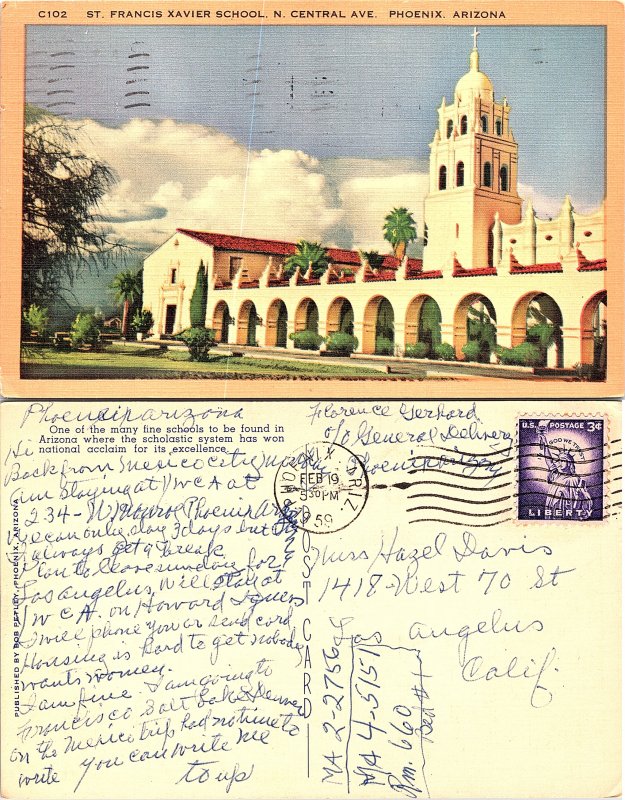 C102 ST. FRANCIS XAVIER SCHOOL, N. CENTRAL AVE. PHOENIX, ARIZONA
Phoenix arizona
One of the many fine schools to be found in
Arizona where the scholastic system has won
national acclaim for its excellence.
Hi
Back from Mexico City
am staying at YWCA at
234 - W Monroe Phoenix Ariz
We can only stay 3 days but
I always get a break
Plan to leave sunday for
Los angelus, will stay at
YWCA. on Howard
I will phone you or send card
Housing is hard to get nobody
wants women.
I am fine. I am going to
Francisco Salt Lake & Denver
on the Mexico trip had no time to
write you can write me
to up
PUBLISHED BY BOB PETLEY, PHOENIX, ARIZONA
POST CARD
Florence Gerhard
c/o General Delivery
Phoenix arizona
PHOENIX ARIZ.
FEB 19
5 30 PM
1959
U.S. POSTAGE 3¢
IN GOD WE TRUST
LIBERTY
Miss Hazel Davis
1418 - West 70 St
Los angelus
Calif.
MA 2-2756
MA 4-5151
Rm. 660
Bed #1